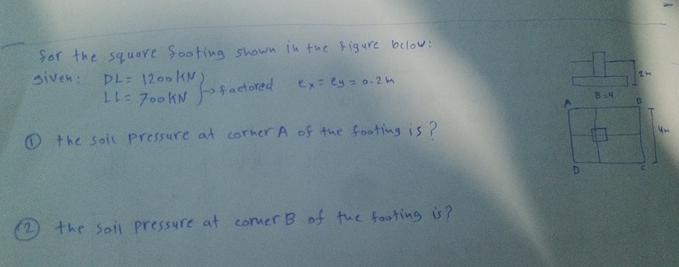 for the square footing shown in the figure below:
given: DL = 1200 KN
LL = 700 KN → factored ex = ey = 0.2m
① the soil pressure at corner A of the footing is?
② the soil pressure at corner B of the footing is?
2m
B=4
A B
4m
D C